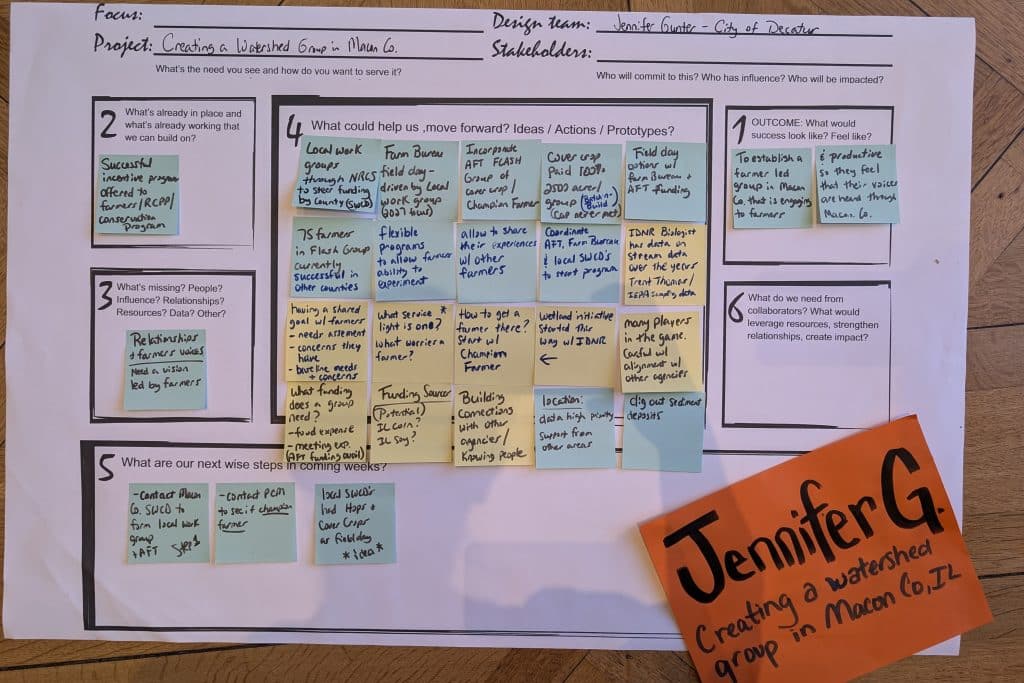 Focus:
Design team: Jennifer Gunter - City of Decatur
Project: Creating a Watershed Group in Macon Co.
Stakeholders:
What's the need you see and how do you want to serve it?
Who will commit to this? Who has influence? Who will be impacted?
2 What's already in place and
what's already working that
we can build on?
Successful
incentive program
offered to
farmers/RCPP/
conservation
program
3 What's missing? People?
Influence? Relationships?
Resources? Data? Other?
Relationships
+ farmers voices
Need a vision
led by farmers
4 What could help us ,move forward? Ideas / Actions / Prototypes?
Local work
groups
through NRCS
to steer funding
by County (SWCD)
Farm Bureau
field day -
driven by Local
work group
(2027 tour)
Incorporate
AFT FLASH
Group of
cover crop/
Champion Farmer
Cover crop
Paid 100%
2500 acres/
group
(Cap never met)
Field day
options w/
Farm Bureau +
AFT funding
75 farmers
in Flash Group
currently
successful in
other counties
flexible
programs
to allow farmers
ability to
experiment
allow to share
their experiences
w/ other
farmers
Coordinate
AFT, Farm Bureau
& local SWCD's
to start program
IDNR Biologist
has data on
stream data
over the years
Trent Thomas/
IEPA data
having a shared
goal w/ farmers
- needs assement
- concerns they
have
- baseline needs
+ concerns
What service *
light is one?
What worries a
farmer?
How to get a
farmer there?
Start w/
Champion
Farmer
Wetland initiative
Started this
way w/ IDNR
←
many players
in the game.
Careful w/
alignment w/
other agencies
What funding
does a group
need?
- food expense
- meeting exp.
(AFT funding avail)
Funding Sources
(Potential)
IL Corn?
IL Soy?
Building
Connections
with other
agencies/
Knowing people
location:
data high priority
support from
other areas
dig out sediment
deposits
1 OUTCOME: What would
success look like? Feel like?
To establish a
farmer led
group in Macon
Co. that is engaging
to farmers
& productive
so they feel
that their voices
are heard through
Macon Co.
6 What do we need from
collaborators? What would
leverage resources, strengthen
relationships, create impact?
5 What are our next wise steps in coming weeks?
- Contact Macon
Co. SWCD to
form local work
group
+ AFT Step 1
- contact PCM
to see if champion
farmer
local SWCD's
had Hops +
Cover Crops
as field day
* idea *
Jennifer G.
Creating a watershed
group in Macon Co, IL